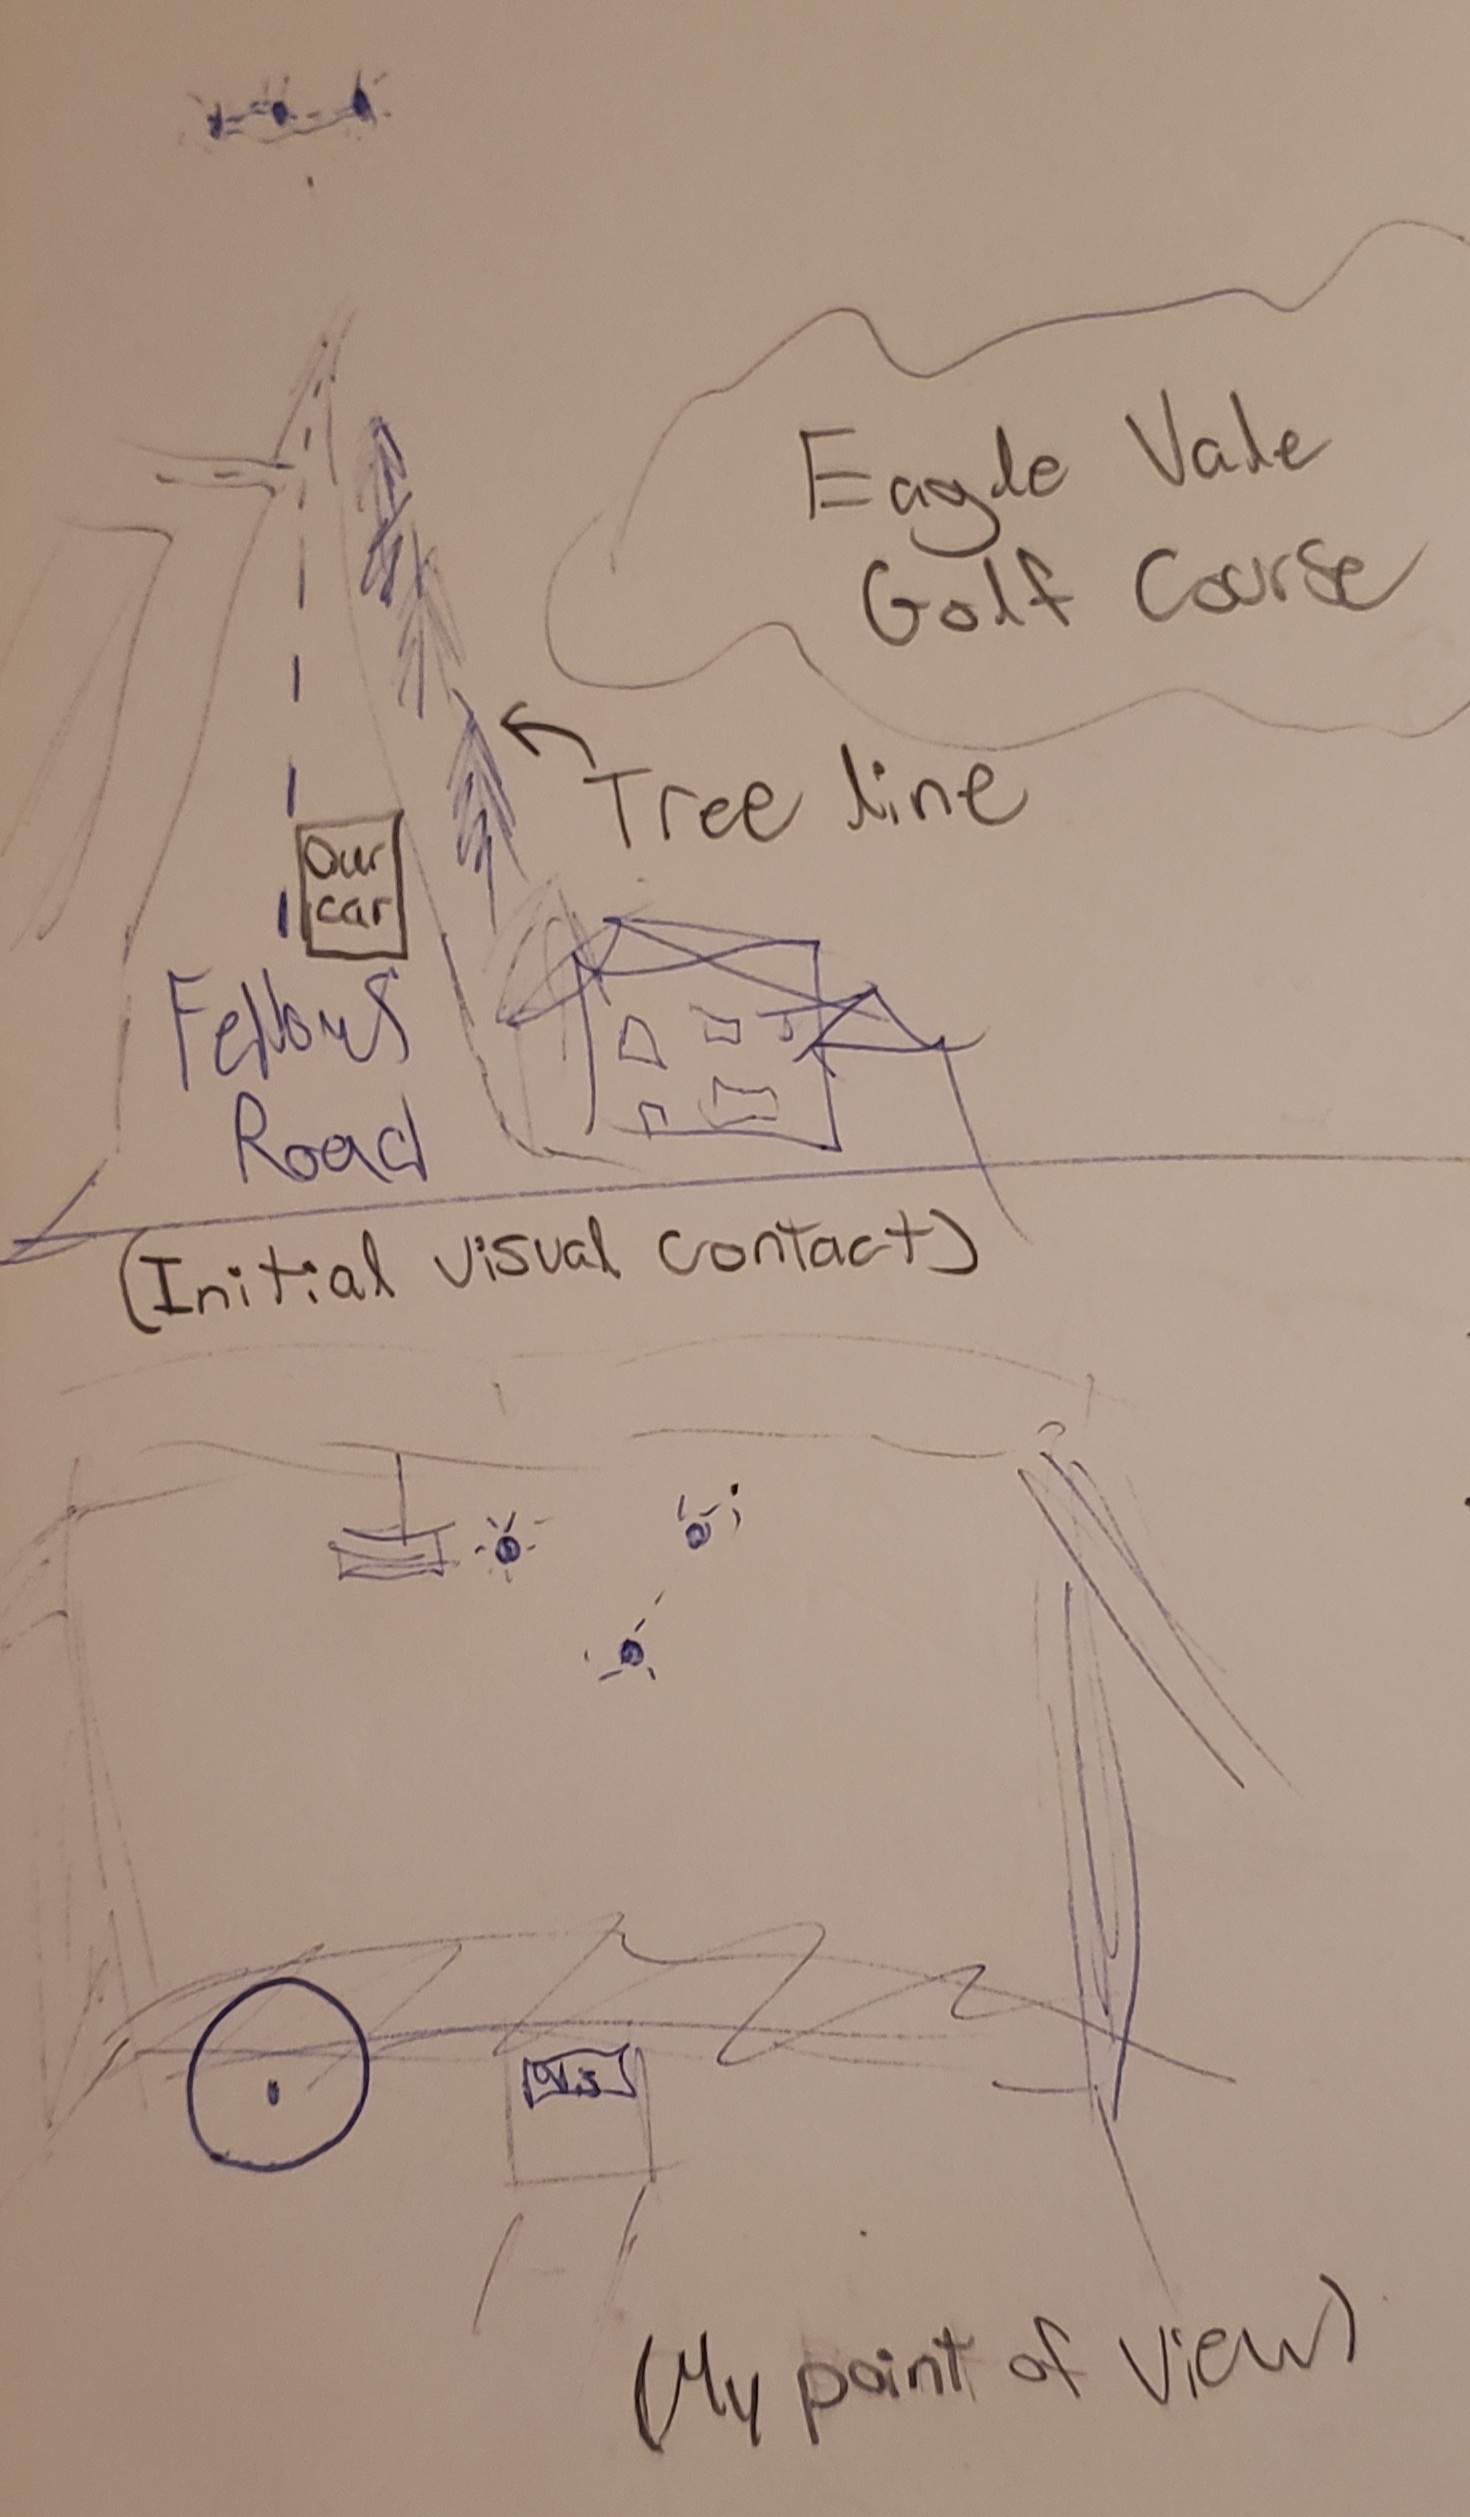 Eagle Vale
Golf Course
Tree line
Our
car
Fellows
Road
(Initial visual contact)
(My point of view)